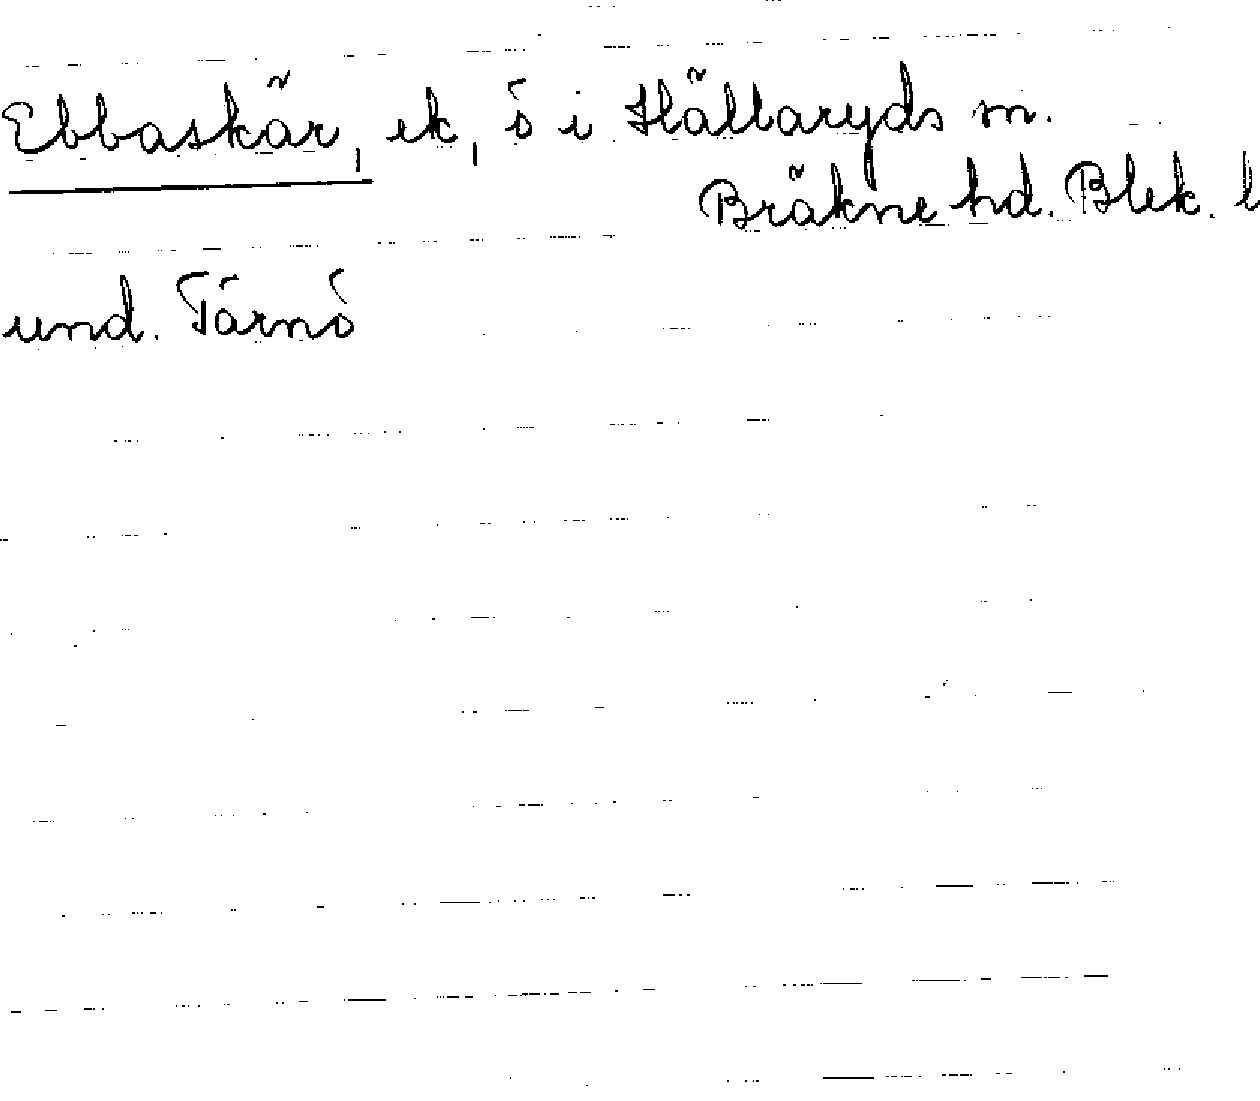 Ebbaskär, ek, ö i Hällaryds sn.
Bräkne hd. Blek. l
und. Tärnö